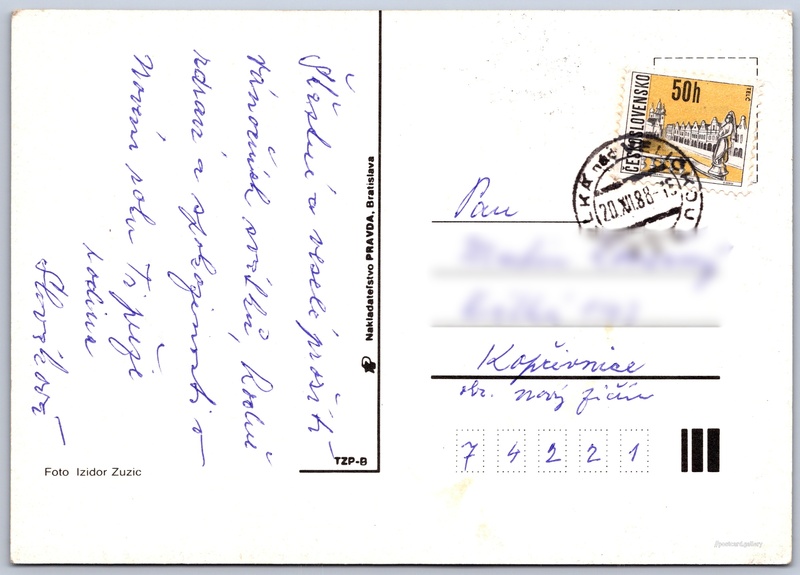 Šťastné a veselé prožití
vánočních svátků, hodně
zdraví a spokojenosti v
Novém roku Ti přeje
rodina
Slováková
Foto Izidor Zuzic
Nakladateľstvo PRAVDA, Bratislava
TZP-B
50h
ČESKOSLOVENSKO
TELČ
20.XII.88-15
Pan
Kopřivnice
okr. Nový Jičín
7 4 2 2 1
//postcard.gallery